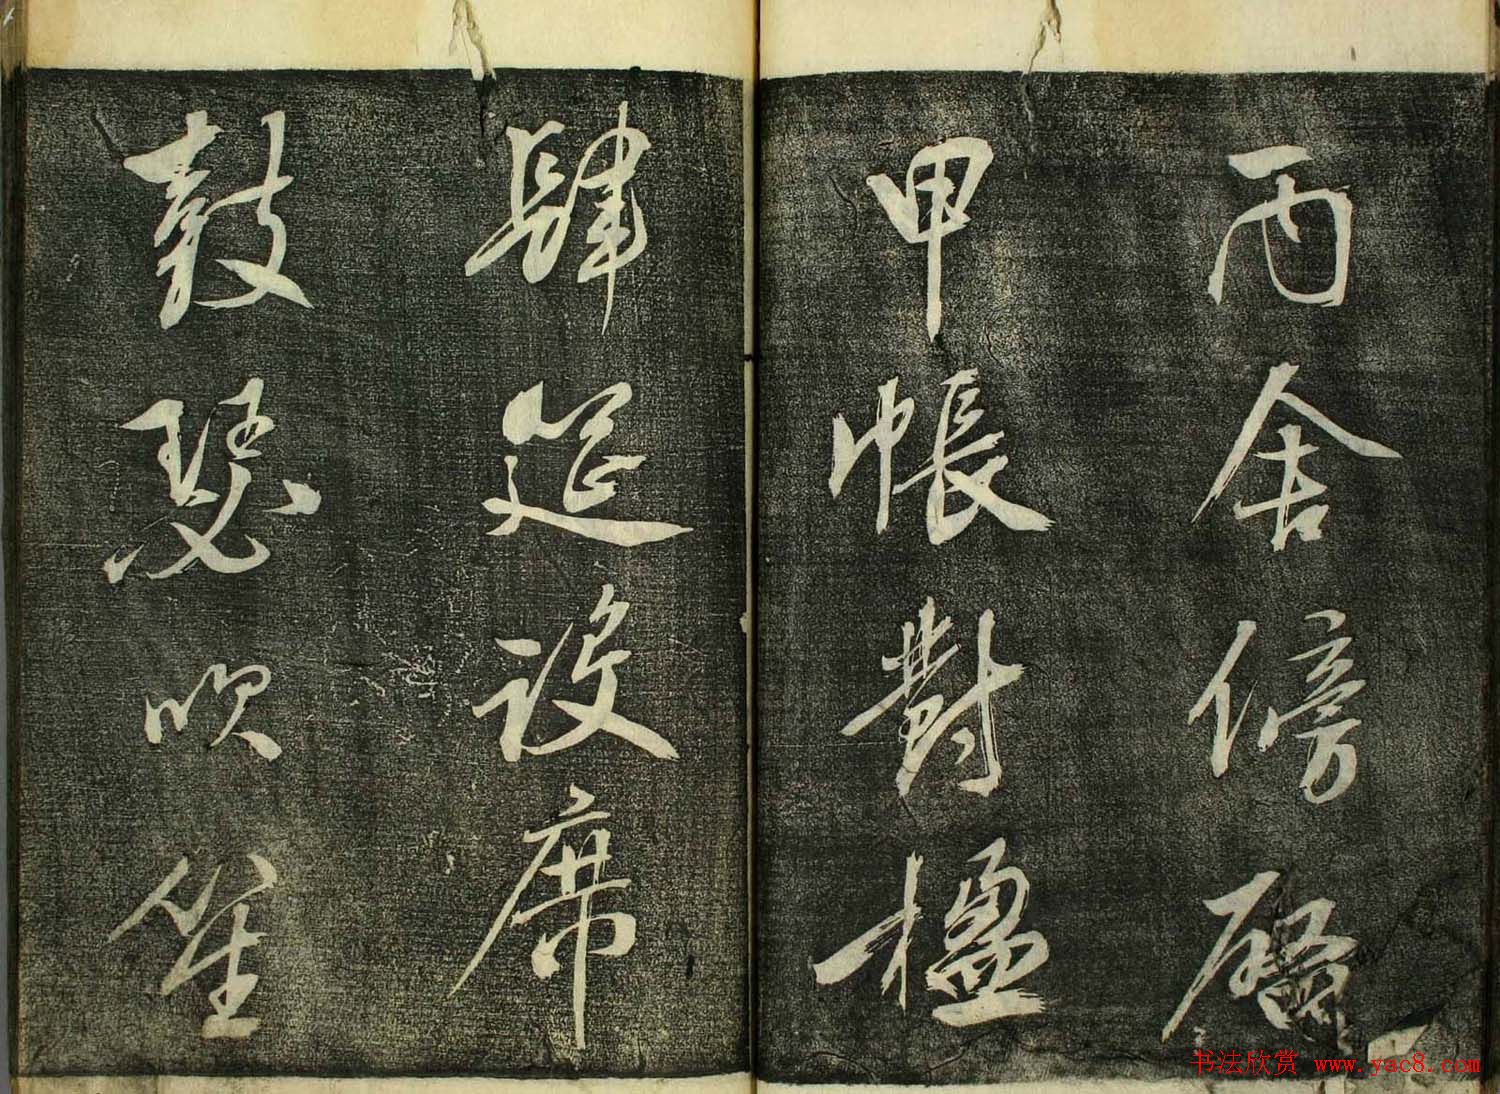 丙舍傍啓
甲帳對楹
肆筵設席
鼓瑟吹笙
书法欣赏 www.yac8.com